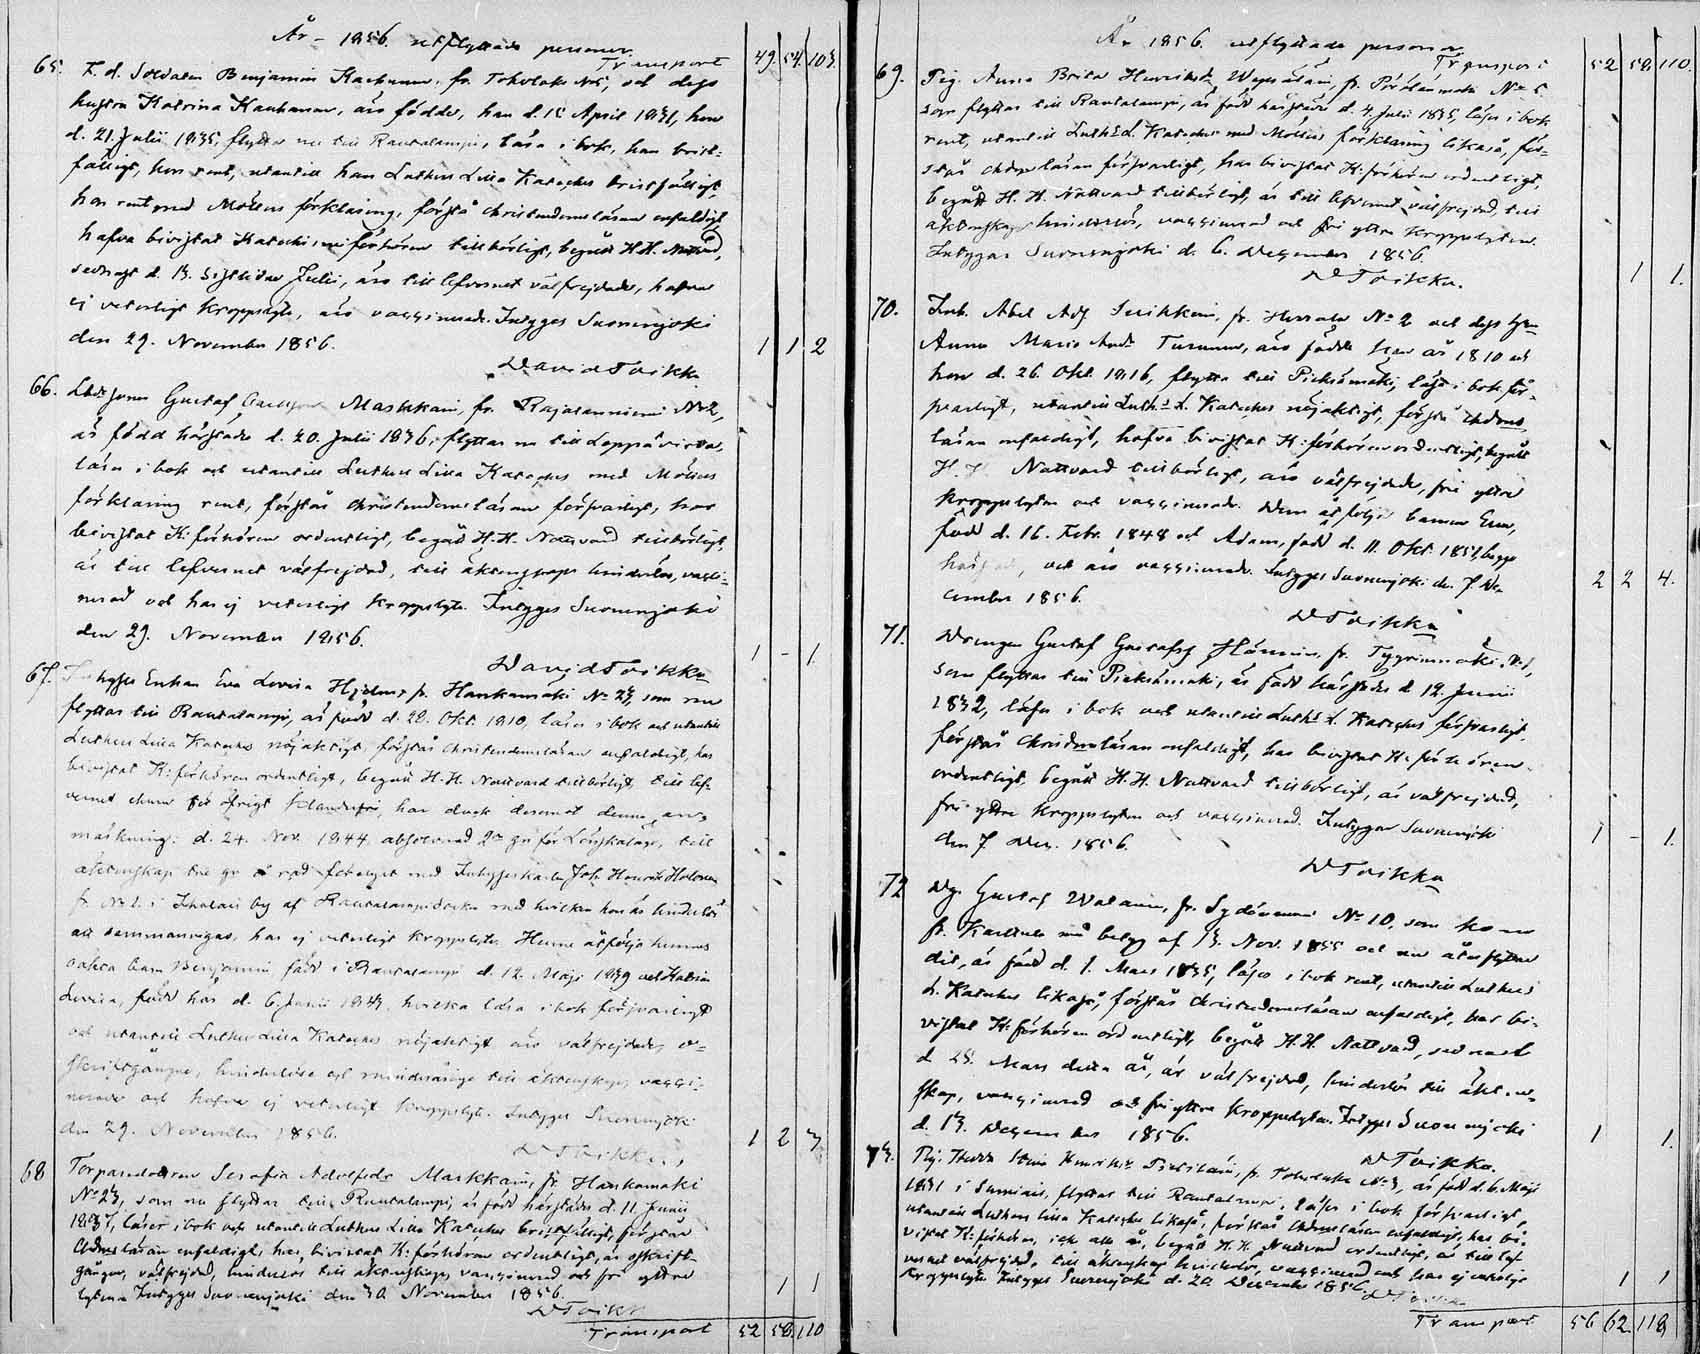 År 1856 utflyttade personer
Transport 49. 54. 103.
65. F. d. Soldaten Benjamin Kauhanen, fr. Toholaks N:5, och dess
hustru Katrina Kauhanen, äro födde, han d. 15 April 1831, hon
d. 21 Julii 1835, flytta nu till Rautalampi, läsa i bok, han brist-
fälligt, hon rent, utantill han Luthers Lilla Kateches bristfälligt,
hon rent med Möllers förklaring, förstå christendomsläran enfaldigt,
hafva bivistat Katechismiförhören tillbörligt, begått H. H. Nattvard,
sednast d. 13. sistlidne Julii, äro till lefvernet välfrejdade, hafva
ej veterligt kroppslyte, äro vaccinerade. Intygas Suonenjoki
den 29. November 1856. 1 1 2
David Toikka.
66. Gustaf Maskkain, fr. Rajalanniemi N:2,
är född härstädes d. 20. Julii 1836, flyttar nu till Leppävirta,
läser i bok och utantill Luthers Lilla Kateches med Möllers
förklaring rent, förstår christendomsläran försvarligt, har
bivistat K:förhören ordentligt, begått H. H. Nattvard tillbörligt,
är till lefvernet välfrejdad, till äktenskap hinderlös, vacci-
nerad och har ej veterligt kroppslyte. Intygas Suonenjoki
den 29. November 1856. 1 - 1.
David Toikka
67. Enkan Eva Lovisa fr. Hankamäki N:23, som nu
flyttar till Rautalampi, är född d. 20. Okt. 1810, läser i bok och utantill
Luthers Lilla Kateches nöjaktigt, förstår Christendomsläran enfaldigt, har
bivistat K:förhören ordentligt, begått H. H. Nattvard tillbörligt, till lef-
vernet ehuru för öfrigt klanderfri, har dock deremot denna an-
märkning: d. 24. Nov. 1844 absolverad 2:a gg för Lönskaläge, till
äktenskap med Joh. Henrik Holonen
fr. N:1. i by af Rautalampi Socken med hvilken hon är hinderlös
att sammanvigas, har ej veterligt kroppslyte. Henne åtfölja hennes
oäkta barn Benjamin född i Rautalampi d. 12. Maji 1839 och
Lovisa, född här d. 6 Junii 1843, hvilka läsa i bok försvarligt
och utantill Luthers Lilla Kateches nöjaktigt, äro välfrejdade, o-
skriftgångne, hinderlösa och minderåriga till äktenskap, vacci-
nerade och hafva ej veterligt kroppslyte. Intygas Suonenjoki
den 29. November 1856. 1 2 3
D Toikka.
68 Torparedottren Serafia Adolfsdr Markkain, fr. Hankamäki
N:23, som nu flyttar till Rautalampi, är född härstädes d. 11. Junii
1837, läser i bok och utantill Luthers Lilla Kateches bristfälligt, förstår
Chdmsläran enfaldigt, har bivistat K:förhören ordentligt, är oskrift-
gången, välfrejdad, hinderlös till äktenskap, vaccinerad och fri yttre
lyten. Intygas Suonenjoki den 30. November 1856. 1 1
D Toikka
Transport 52 58. 110
År 1856. utflyttade personer
Transport 52 58. 110.
69. Pig. Anna Brita Henriksd. fr. N:5
som flyttar till Rautalampi, är född härstädes d. 4. Julii 1835, läser i bok
rent, utantill Luth:s L. Kateches med Möllers förklaring likaså, för-
står chdmsläran försvarligt, har bivistat K:förhören ordentligt,
begått H. H. Nattvard tillbörligt, är till lefvernet välfrejdad, till
äktenskap hinderlös, vaccinerad och fri yttre kroppslyten.
Intygas Suonenjoki d. 6. December 1856.
D Toikka. 1 1.
70. Inh. Abel Adf fr. N:2 och dess hustru
Anna Maria Andr. Turunen, äro födde han år 1810 och
hon d. 26. Okt. 1816, flytta till Pieksämäki, läsa i bok för-
svarligt, utantill Luth:s L. Kateches nöjaktigt, förstå chdoms-
läran enfaldigt, hafva bivistat K:förhören ordentligt, begått
H. H. Nattvard tillbörligt, äro välfrejdade, fri yttre
kroppslyten och vaccinerade. Dem åtfölja barnen Eva,
född d. 16. Febr. 1848 och Adam, född d. 11. Okt. 1851, begge
härstädes, och äro vaccinerade. Intygas Suonenjoki den 7. De-
cember 1856. 2 2 4.
D Toikka
71. Drengen Gustaf Gustafss fr. Tyyrinmäki, N:1,
som flyttar till Pieksämäki, är född härstädes d. 12. Junii
1832, läser i bok och utantill Luth:s L. Kateches försvarligt,
förstår Chrisdmsläran enfaldigt, har bivistat K:förhören
ordentligt, begått H. H. Nattvard tillbörligt, är välfrejdad,
fri yttre kroppslyten och vaccinerad. Intygas Suonenjoki
den 7. Dec. 1856. 1 - 1.
D Toikka
72 Dg. Gustaf fr. N:10, som kom
fr. Karttula med betyg af 13. Nov. 1855 och nu återflyttar
dit, är född d. 1. Mars 1835, läser i bok rent, utantill Luthers
L. Kateches likaså, förstår christendomsläran enfaldigt, har bi-
vistat K:förhören ordentligt, begått H. H. Nattvard, sednast
d. 25. Mars detta år, är välfrejdad, hinderlös till äkten-
skap, vaccinerad och fri yttre kroppslyten. Intygas Suonenjoki
d. 13. December 1856. 1 1.
D Toikka.
73. Pig. Stina Henriksd. fr. N:3, är född d. 6. Maji
1831 i Sumiais, flyttar till Rautalampi, läser i bok försvarligt,
utantill Luthers lilla Kateches likaså, förstår Chdmsläran enfaldigt, har bi-
vistat K:förhören, begått H. H. Nattvard ordentligt, är till lef-
vernet välfrejdad, till äktenskap hinderlös, vaccinerad och har ej veterligt
kroppslyte. Intygas Suonenjoki d. 20. December 1856. 1 1
D Toikka
Transport 56 62. 118